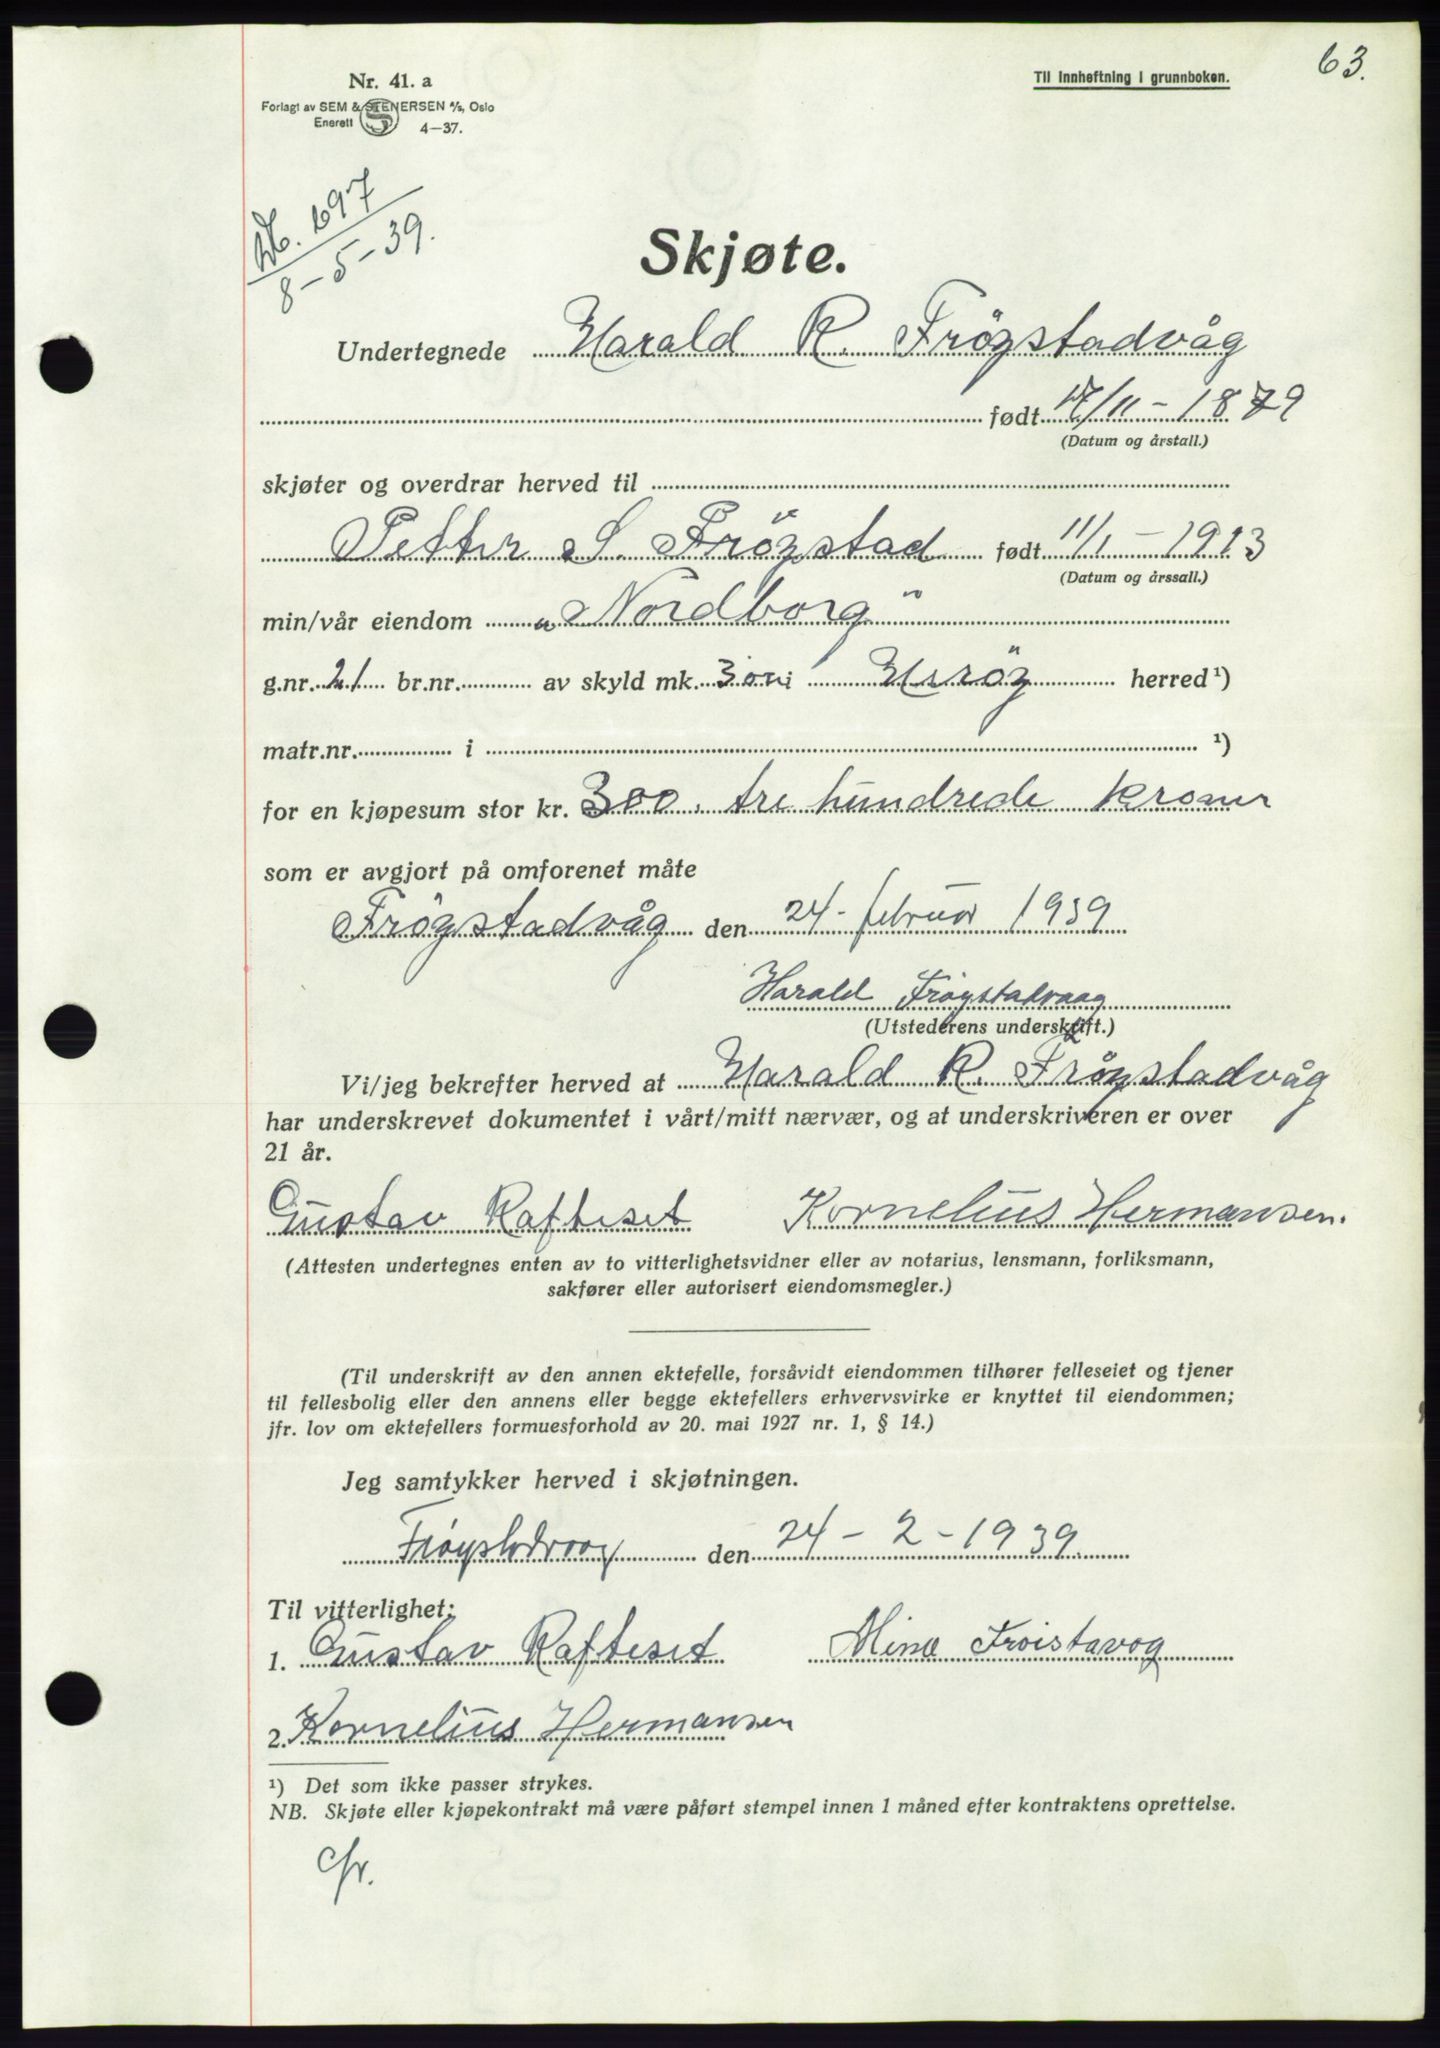 63.
Nr. 41. a
Til innheftning i grunnboken.
Forlagt av SEM & STENERSEN A/s, Oslo
Enerett
4—37.
697
8-5-39.
Skjøte.
Undertegnede Harald R. Frögstadvåg
født 17/11-1879
(Datum og årstall.)
skjøter og overdrar herved til
Petter S. Frögstad født 11/1-1913
(Datum og årssall.)
min/vår eiendom „Nordborg"
g.nr. 21 br.nr. av skyld mk. 3 öre i Heröy herred ¹)
matr.nr. i ¹)
for en kjøpesum stor kr. 300. tre hundrede kroner
som er avgjort på omforenet måte
Frögstadvåg den 24- februar 1939
Harald Frøystadvaag
(Utstederens underskrift.)
Vi/jeg bekrefter herved at Harald R. Frögstadvåg
har underskrevet dokumentet i vårt/mitt nærvær, og at underskriveren er over
21 år.
Gustav Rafteset Kornelius Hermansen.
(Attesten undertegnes enten av to vitterlighetsvidner eller av notarius, lensmann, forliksmann,
sakfører eller autorisert eiendomsmegler.)
(Til underskrift av den annen ektefelle, forsåvidt eiendommen tilhører felleseiet og tjener
til fellesbolig eller den annens eller begge ektefellers erhvervsvirke er knyttet til eiendommen;
jfr. lov om ektefellers formuesforhold av 20. mai 1927 nr. 1, § 14.)
Jeg samtykker herved i skjøtningen.
Frøystadvaag den 24-2-1939.
Til vitterlighet:
1. Gustav Rafteset Mina Froistavog
2. Kornelius Hermansen
¹) Det som ikke passer strykes.
NB. Skjøte eller kjøpekontrakt må være påført stempel innen 1 måned efter kontraktens oprettelse.